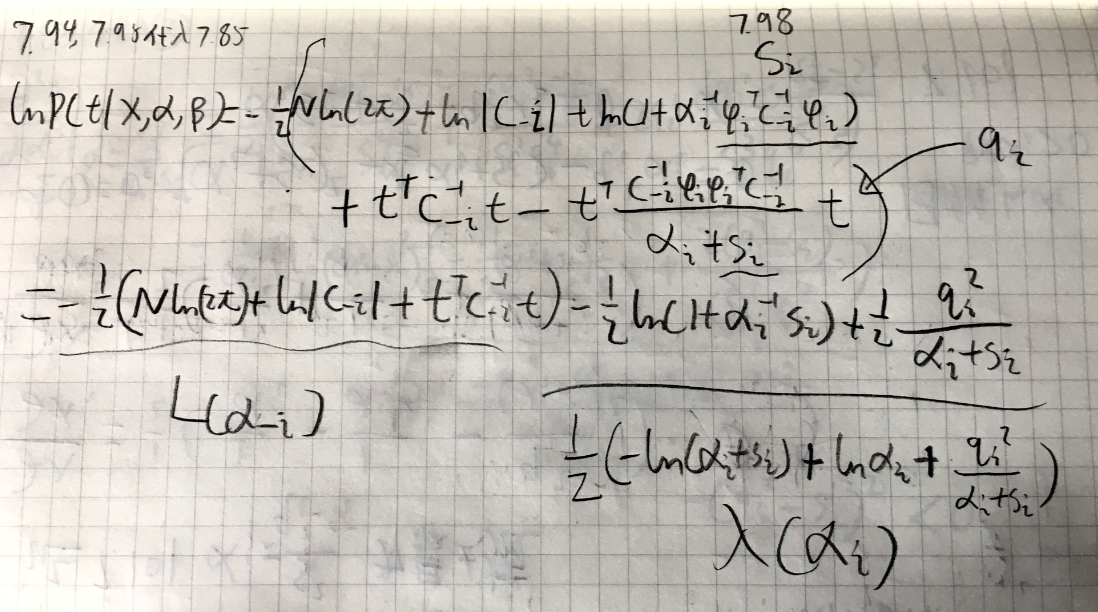 7.94, 7.95代入 7.85
7.98
Si
ln P(t|X,α,β) = -1/2 (N ln(2π) + ln|C-i| + ln(1+αi⁻¹ φiᵀ C-i⁻¹ φi)
+ tᵀ C-i⁻¹ t - tᵀ (C-i⁻¹ φi φiᵀ C-i⁻¹)/(αi + si) t )
qi
= -1/2 (N ln(2π) + ln|C-i| + tᵀ C-i⁻¹ t) - 1/2 ln(1+αi⁻¹ si) + 1/2 qi²/(αi + si)
L(α-i)
1/2 (-ln(αi+si) + ln αi + qi²/(αi+si))
λ(αi)